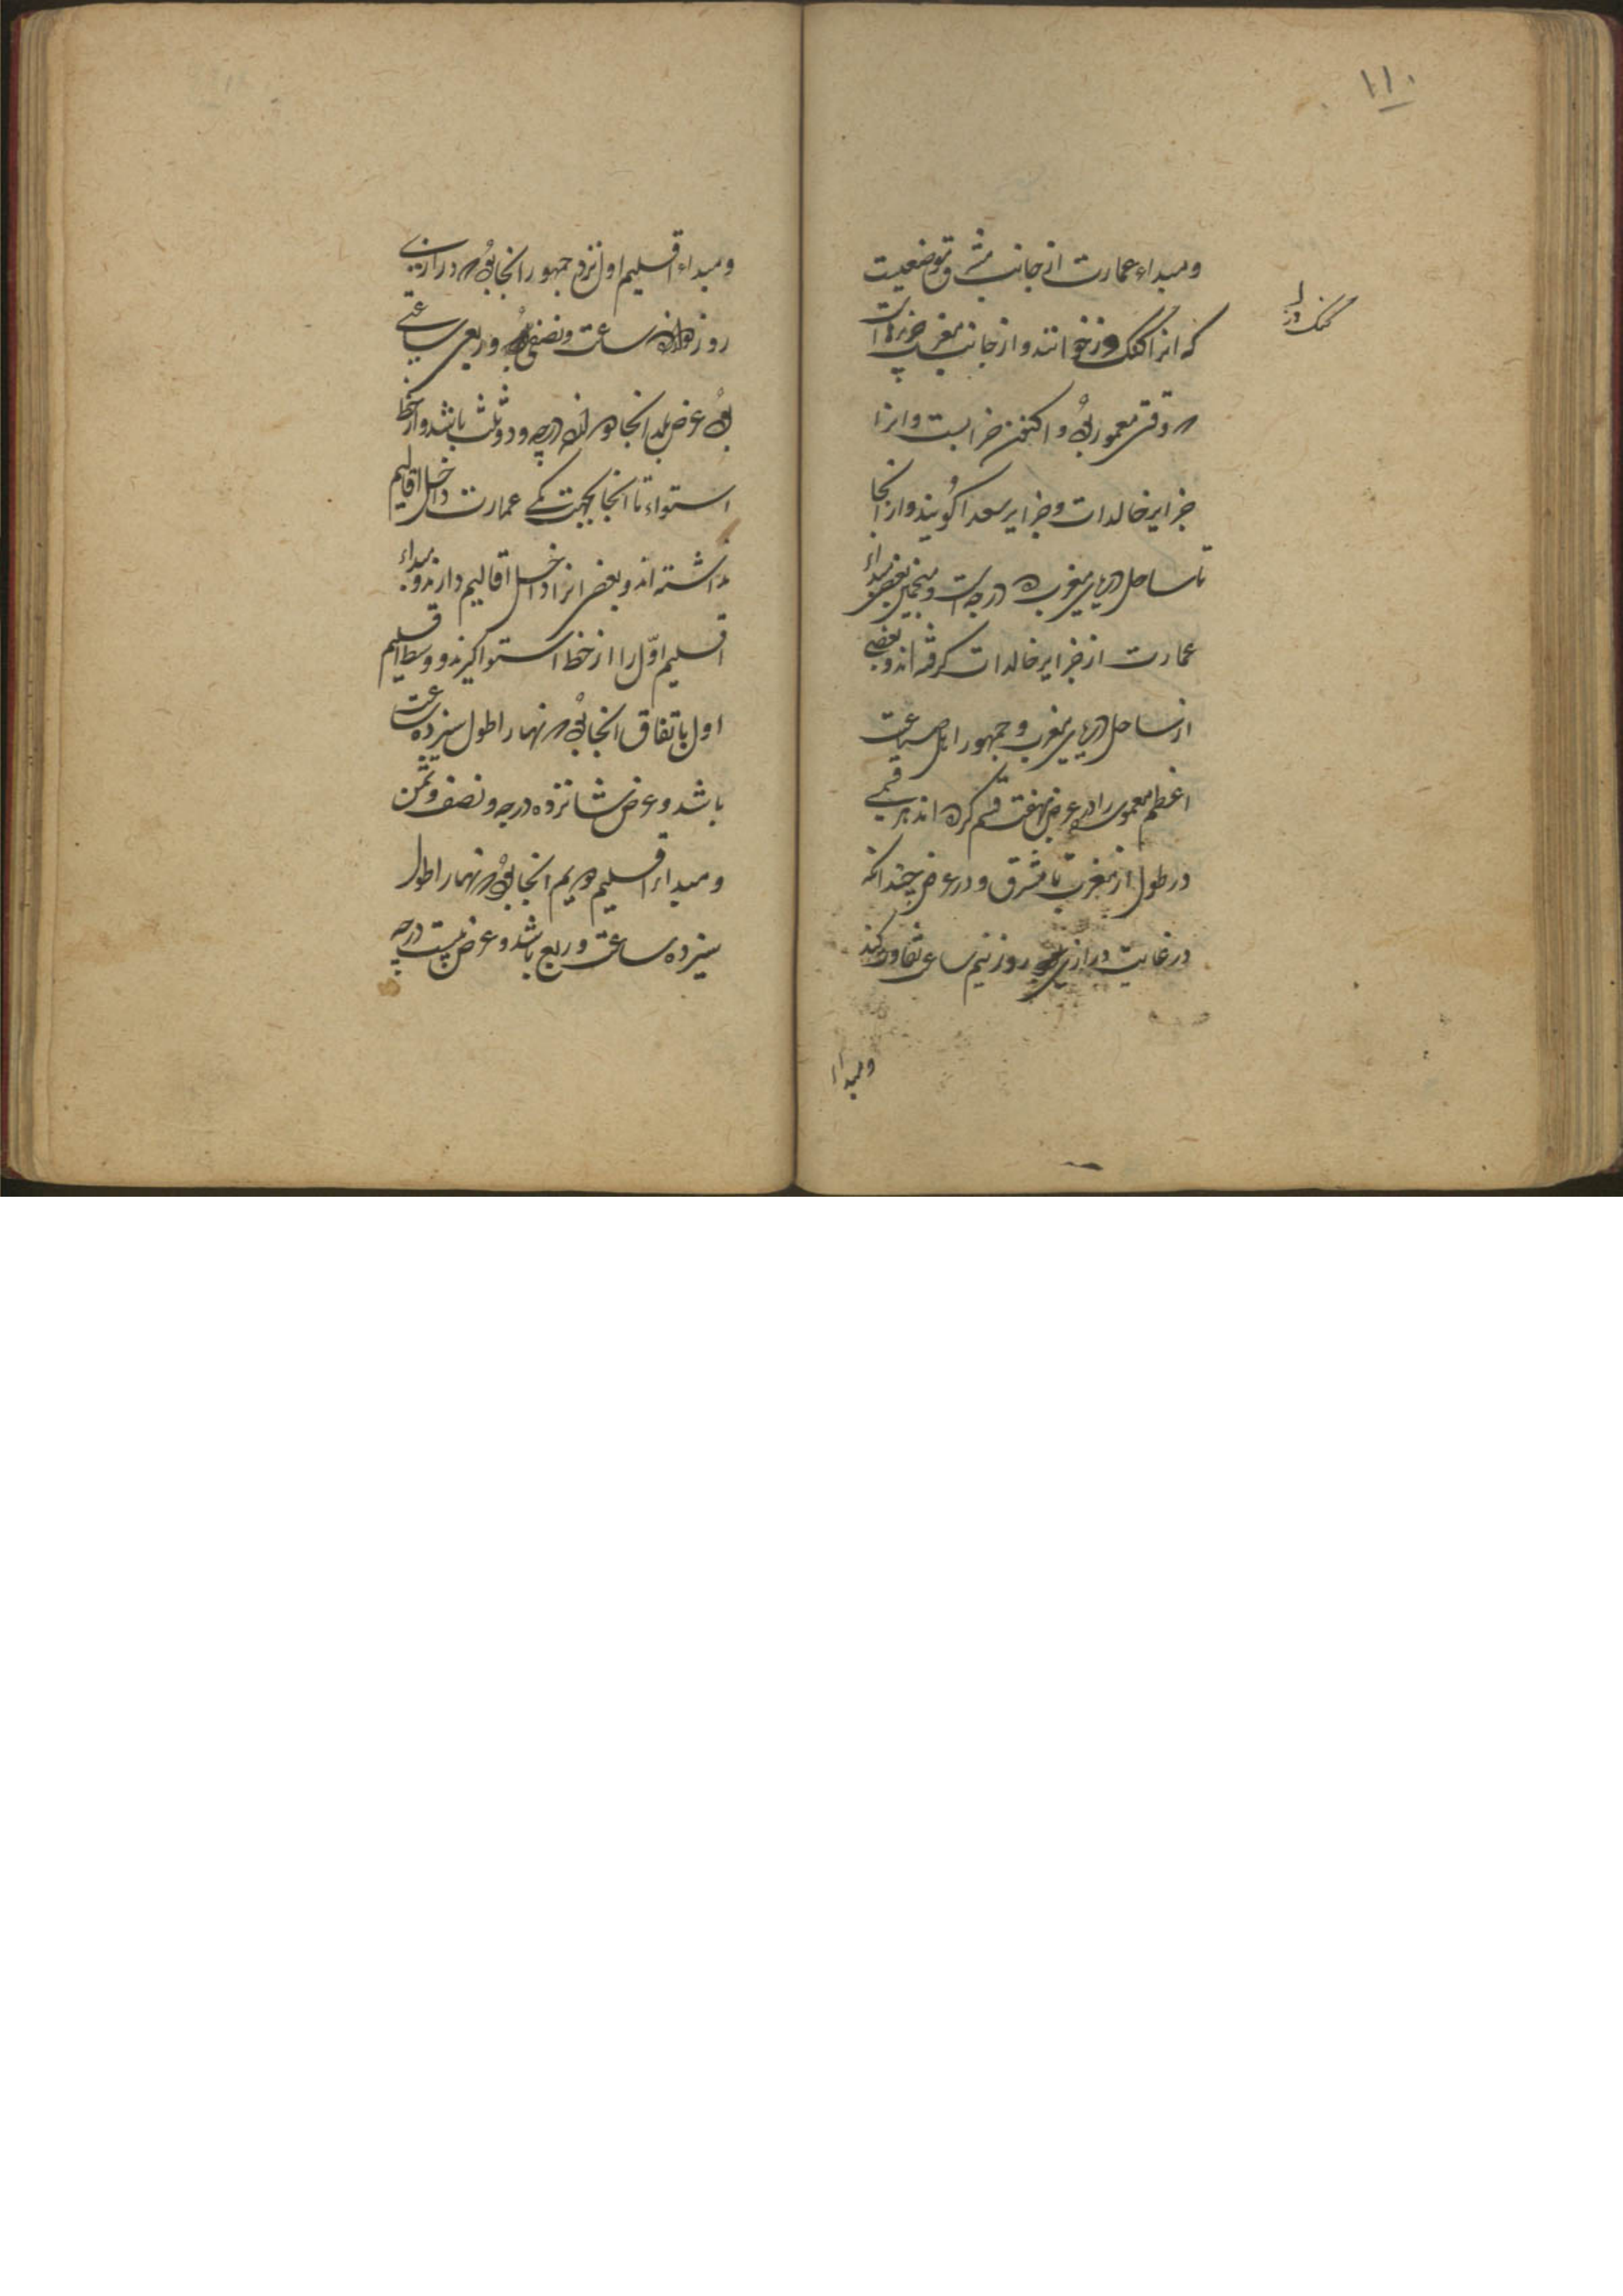 ١١٠
ومبداء عمارت از جانب مشرق موضعیست
که انرا کنک دز خوانند و از جانب مغرب جزیرهاست
کنک دز
که وقتی معمور بوده و اکنون خرابست و انرا
جزایر خالدات و جزایر سعدا کویند و از انجا
تا ساحل دریای مغرب ده درجه است و منجمین بعضی مبداء
عمارت از جزایر خالدات کرفته اند و بعضی
از ساحل دریای مغرب و جمهور اهل صناعت
اعظم معموره را در عرض بهفت قسم کرده اند هر قسمی
در طول از مغرب تا مشرق و در عرض چندانکه
در غایت درازی روز نیم ساعت تفاوت کند
ومبداء
ومبداء اقلیم اول نزد جمهور انجا بود که درازی
روز دوازده ساعت و نصفی و ربعی ساعتی
بود عرض بلد انجا دوازده درجه و دو ثلث باشد و از خط
استواء تا انجا بجهت کمی عمارت داخل اقالیم
نداشته اند و بعضی انرا داخل اقالیم دارند و مبداء
اقلیم اوّل را از خط استوا کیرند و وسط اقلیم
اول باتفاق انجا بود که نهار اطول سیزده ساعت
باشد و عرض شانزده درجه و نصف و ثمن
ومبداء اقلیم دویم انجا بود که نهار اطول
سیزده ساعت و ربع باشد و عرض بیست درجه